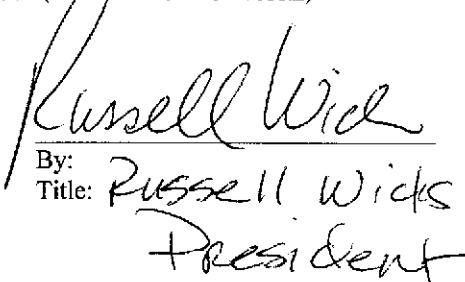 Russell Wicks
By:
Title: Russell Wicks
President